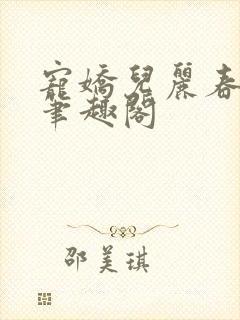 寵嬌兒麗春
筆趣閣
邵美琪